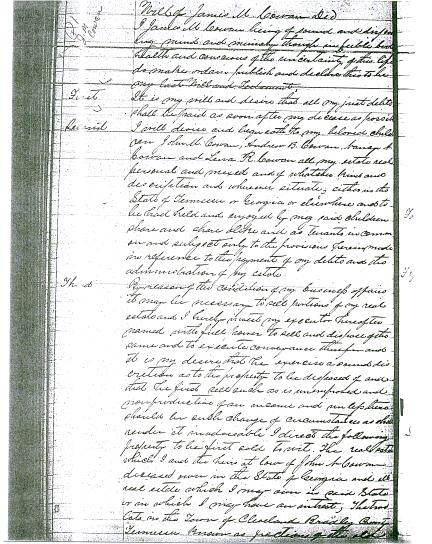 Will of James M. Cowan Decd
I James M. Cowan being of sound and dispos
ing mind and memory though in feeble bod
health and conscious of the uncertainty of this life
do make ordain publish and declare this to be
my last Will and Testament
First It is my will and desire that all my just debts
shall be paid as soon after my decease as possib
Second I will devise and bequeath to my beloved child
ren John M. Cowan, Andrew B. Cowan, Nancy A
Cowan and Lena R. Cowan all my estate real
personal and mixed and of whatever kind and
discription and wherever situate, either in the
State of Tennessee or Georgia or elsewhere and to
be had held and enjoyed by my said children
share and share alike and as tenants in comm
on and subject only to the provisions herein made
in reference to the payment of my debts and the
administration of my estate
Third By reason of the condition of my business affairs
it may be necessary to sell portions of my real
estate and I hereby invest my executor hereafter
named with full power to sell and dispose of the
same and to execute conveyance therefor and
it is my desire that he exercise a sound dis
cretion as to the property to be disposed of and
that he first sell such as is unimproved and
nonproductive of an income and unless there
should be such change of circumstances as shall
render it unadvisable I direct the following
property to be first sold to wit. The real estate
which I and the heirs at law of John A. Cowan
deceased own in the State of Georgia and all
real estate which I may own in said State
or in which I may have an intrest; The real
estate in the Town of Cleveland Bradley County
Tennessee known as portions of the